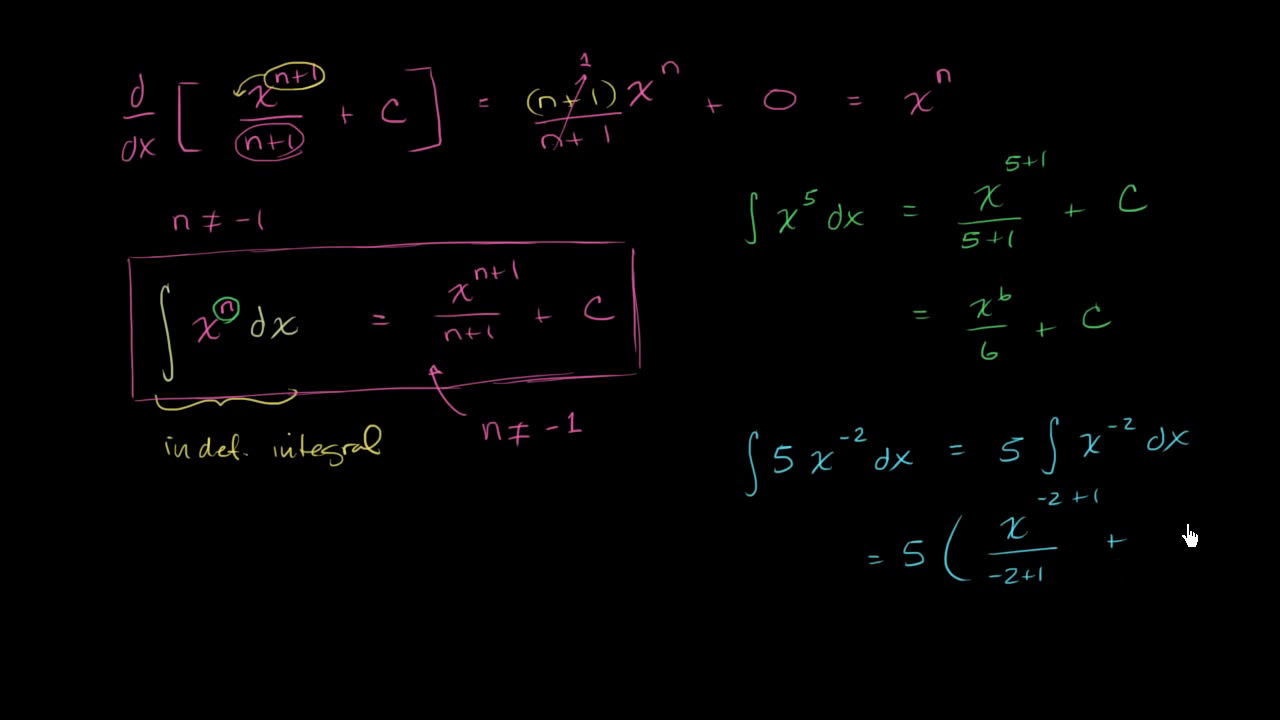 d/dx [ x^(n+1)/(n+1) + C ] = (n+1)x^n/(n+1) + 0 = x^n
1
n ≠ -1
∫ x^n dx = x^(n+1)/(n+1) + C
n ≠ -1
indef. integral
∫ x^5 dx = x^(5+1)/(5+1) + C
= x^6/6 + C
∫ 5 x^-2 dx = 5 ∫ x^-2 dx
= 5 ( x^(-2+1)/(-2+1) +